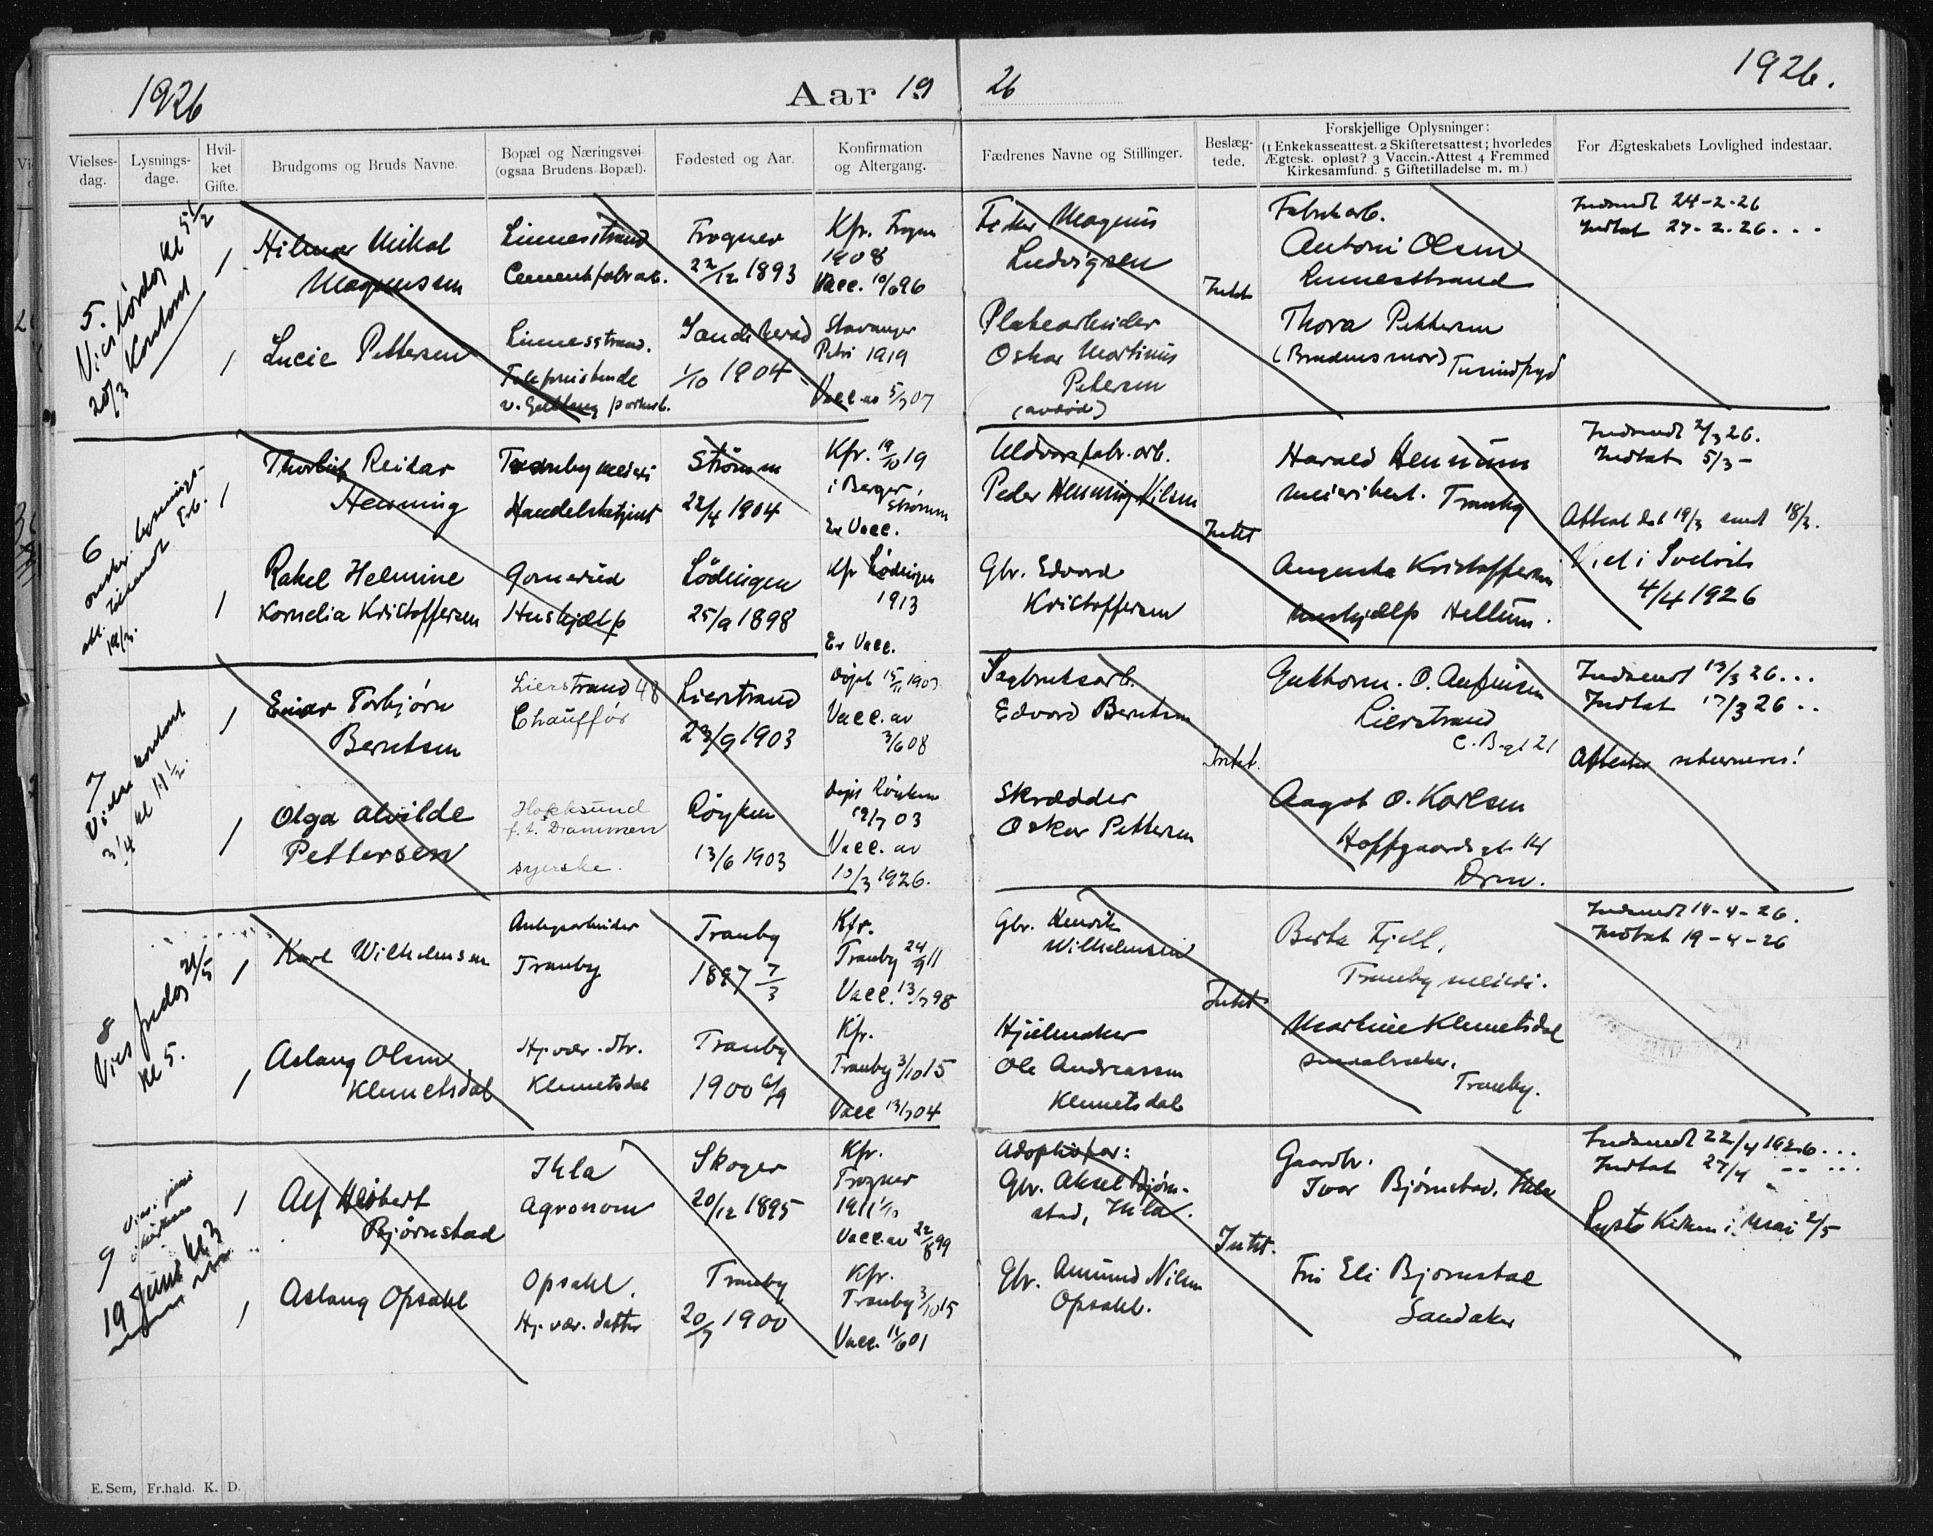 1926
Aar 19 26
1926.
Vielses-
dag.
Lysnings-
dage.
Hvil-
ket
Gifte.
Brudgoms og Bruds Navne.
Bopæl og Næringsvei
(ogsaa Brudens Bopæl).
Fødested og Aar.
Konfirmation
og Altergang.
Fædrenes Navne og Stillinger.
Beslæg-
tede.
Forskjellige Oplysninger:
(1 Enkekasseattest. 2 Skifteretsattest; hvorledes
Ægtesk. opløst? 3 Vaccin.-Attest 4 Fremmed
Kirkesamfund. 5 Giftetilladelse m. m.)
For Ægteskabets Lovlighed indestaar.
5.
Vies lørdag kl 5 1/2
20/3 Kontort
1
Hilmar Mikal
Magnussen
Linnesstrand
Cementfabrarb.
Frogner
22/12 1893
Kfr. Frogn
1908
Vacc. 10/6 96
Fisker Magnus
Ludvigsen
Intet
Fabrikarb.
Antoni Olsen
Linnesstrand
Indsendt 24-2-26
Indtat 27-2-26...
1
Lucie Pettersen
Linnesstrand.
Sandeherad
1/10 1904
Stavanger
Petri 1919
Vacc. av 5/7 07
Platearbeider
Oskar Martinius
Petersen
(avdød)
Thora Pettersen
(Brudens mor)
6
1
Thorleif Reidar
Henning
Tranby meieri
Handelsbetjent
Strømm
22/4 1904
Kfr. 19/10 19
i Berger
Strømm
Er Vacc.
Uldvarefabr.arb.
Peder Henning Nilsen
Intet
Harald Hennum
meieribest. Tranby
Indsendt 2/3 26.
Indtat 5/3 -
Attest dat 19/3 sendt 18/3.
1
Rakel Helmine
Kornelia Kristoffersen
Gomerud
Hushjælp
Lødingen
25/9 1898
Kfr Lødingen
1913
Er Vacc.
Gbr. Edvard
Kristoffersen
Augusta Kristoffersen
Hushjælp Hellum.
Viet i Svelvik
4/4 1926
7
Vielse kontort
3/4 kl 11 1/2.
1
Einar Torbjørn
Berntsen
Lierstrand 48
Chauffør
Lierstrand
23/9 1903
Døpt 15/11 1903
Vacc. av
3/6 08
Sagbruksarb.
Edvard Berntsen
Intet.
Guthorm. O. Anfinsen
Lierstrand
Indsendt 13/3 26...
Indtat 17/3 26..
Attester returneres!
1
Olga Alvilde
Pettersen
Hokksund
f. t. Drammen
syerske.
Røyken
13/6 1903
døpt Røyken
12/7 03
Vacc. av
10/3 1926.
Skrædder
Oskar Pettersen
Aagot O. Karlsen
Hoffgaardsgt. 14
Drm.
8
Vies fredag 21/5
Kl 5.
1
Karl Wilhelmsen
Anlegsarbeider
Tranby
Tranby
1897 7/3
Kfr.
Tranby 24/9 11
Vacc. 13/7 98
Gbr. Henrik
Wilhelmsen
Intet
Berta Fjell,
Tranby meieri.
Indsendt 14-4-26.
Indtat 19-4-26
1
Aslaug Olsen
Klemetsdal
Hj.vær. dtr.
Klemetsdal
Tranby
1900 6/9
Kfr.
Tranby 3/10 15
Vacc 13/7 04
Hjulmaker
Ole Andreassen
Klemetsdal
Martine Klemetsdal
Tranby.
9
19 Juni kl 3
1
Alf Herbert
Bjørnstad
Ihla
Agronom
Skoger
20/12 1895
Kfr.
Frogner
1911 1/10
Vacc. av 22/8 99
Adoptivfar:
Gbr. Aksel Bjørn-
stad, Ihla.
Intet.
Gaardbr.
Ivar Bjørnstad, Ihla
Indsendt 22/4 1926...
Indtat 27/4 -- ...
Lyst i Kirken i Mai 2/5
1
Aslaug Opsahl
Opsahl.
Hj. vær. datter
Tranby
20/7 1900
Kfr.
Tranby 3/10 15
Vacc. 11/6 01
Gbr. Amund Nilsen
Opsahl.
Frk Eli Bjørnstad
Sandaker
E. Sem, Fr.hald. K. D.